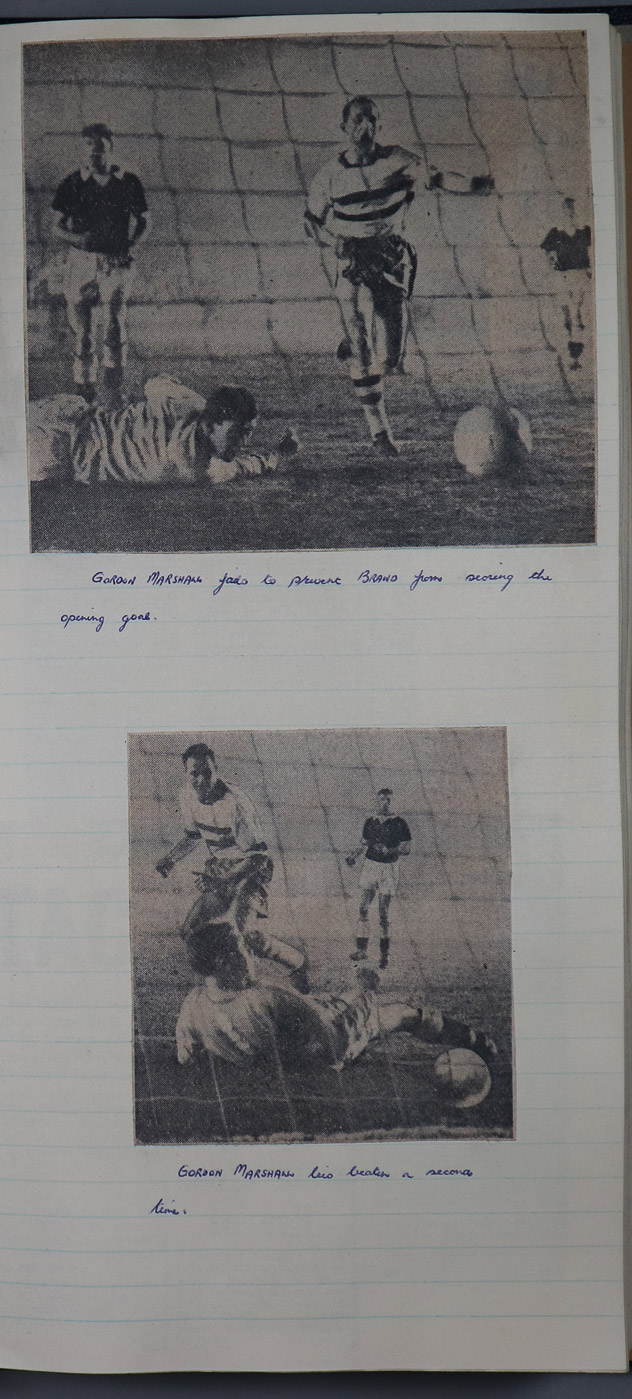 GORDON MARSHALL fails to prevent BRAND from scoring the
opening goal.
GORDON MARSHALL lies beaten a second
time.